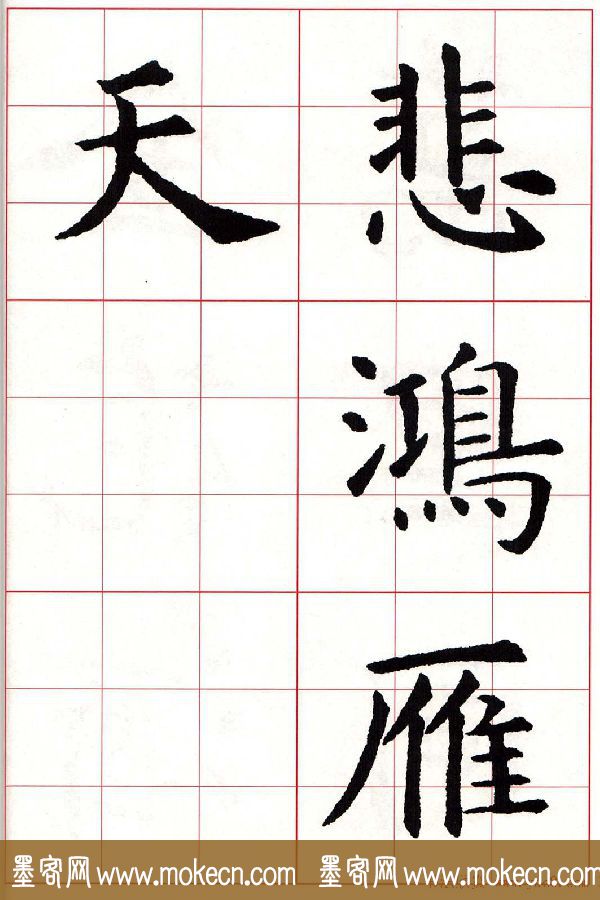 悲鴻雁
天
墨客网 www.mokecn.com 墨客网 www.mokecn.com